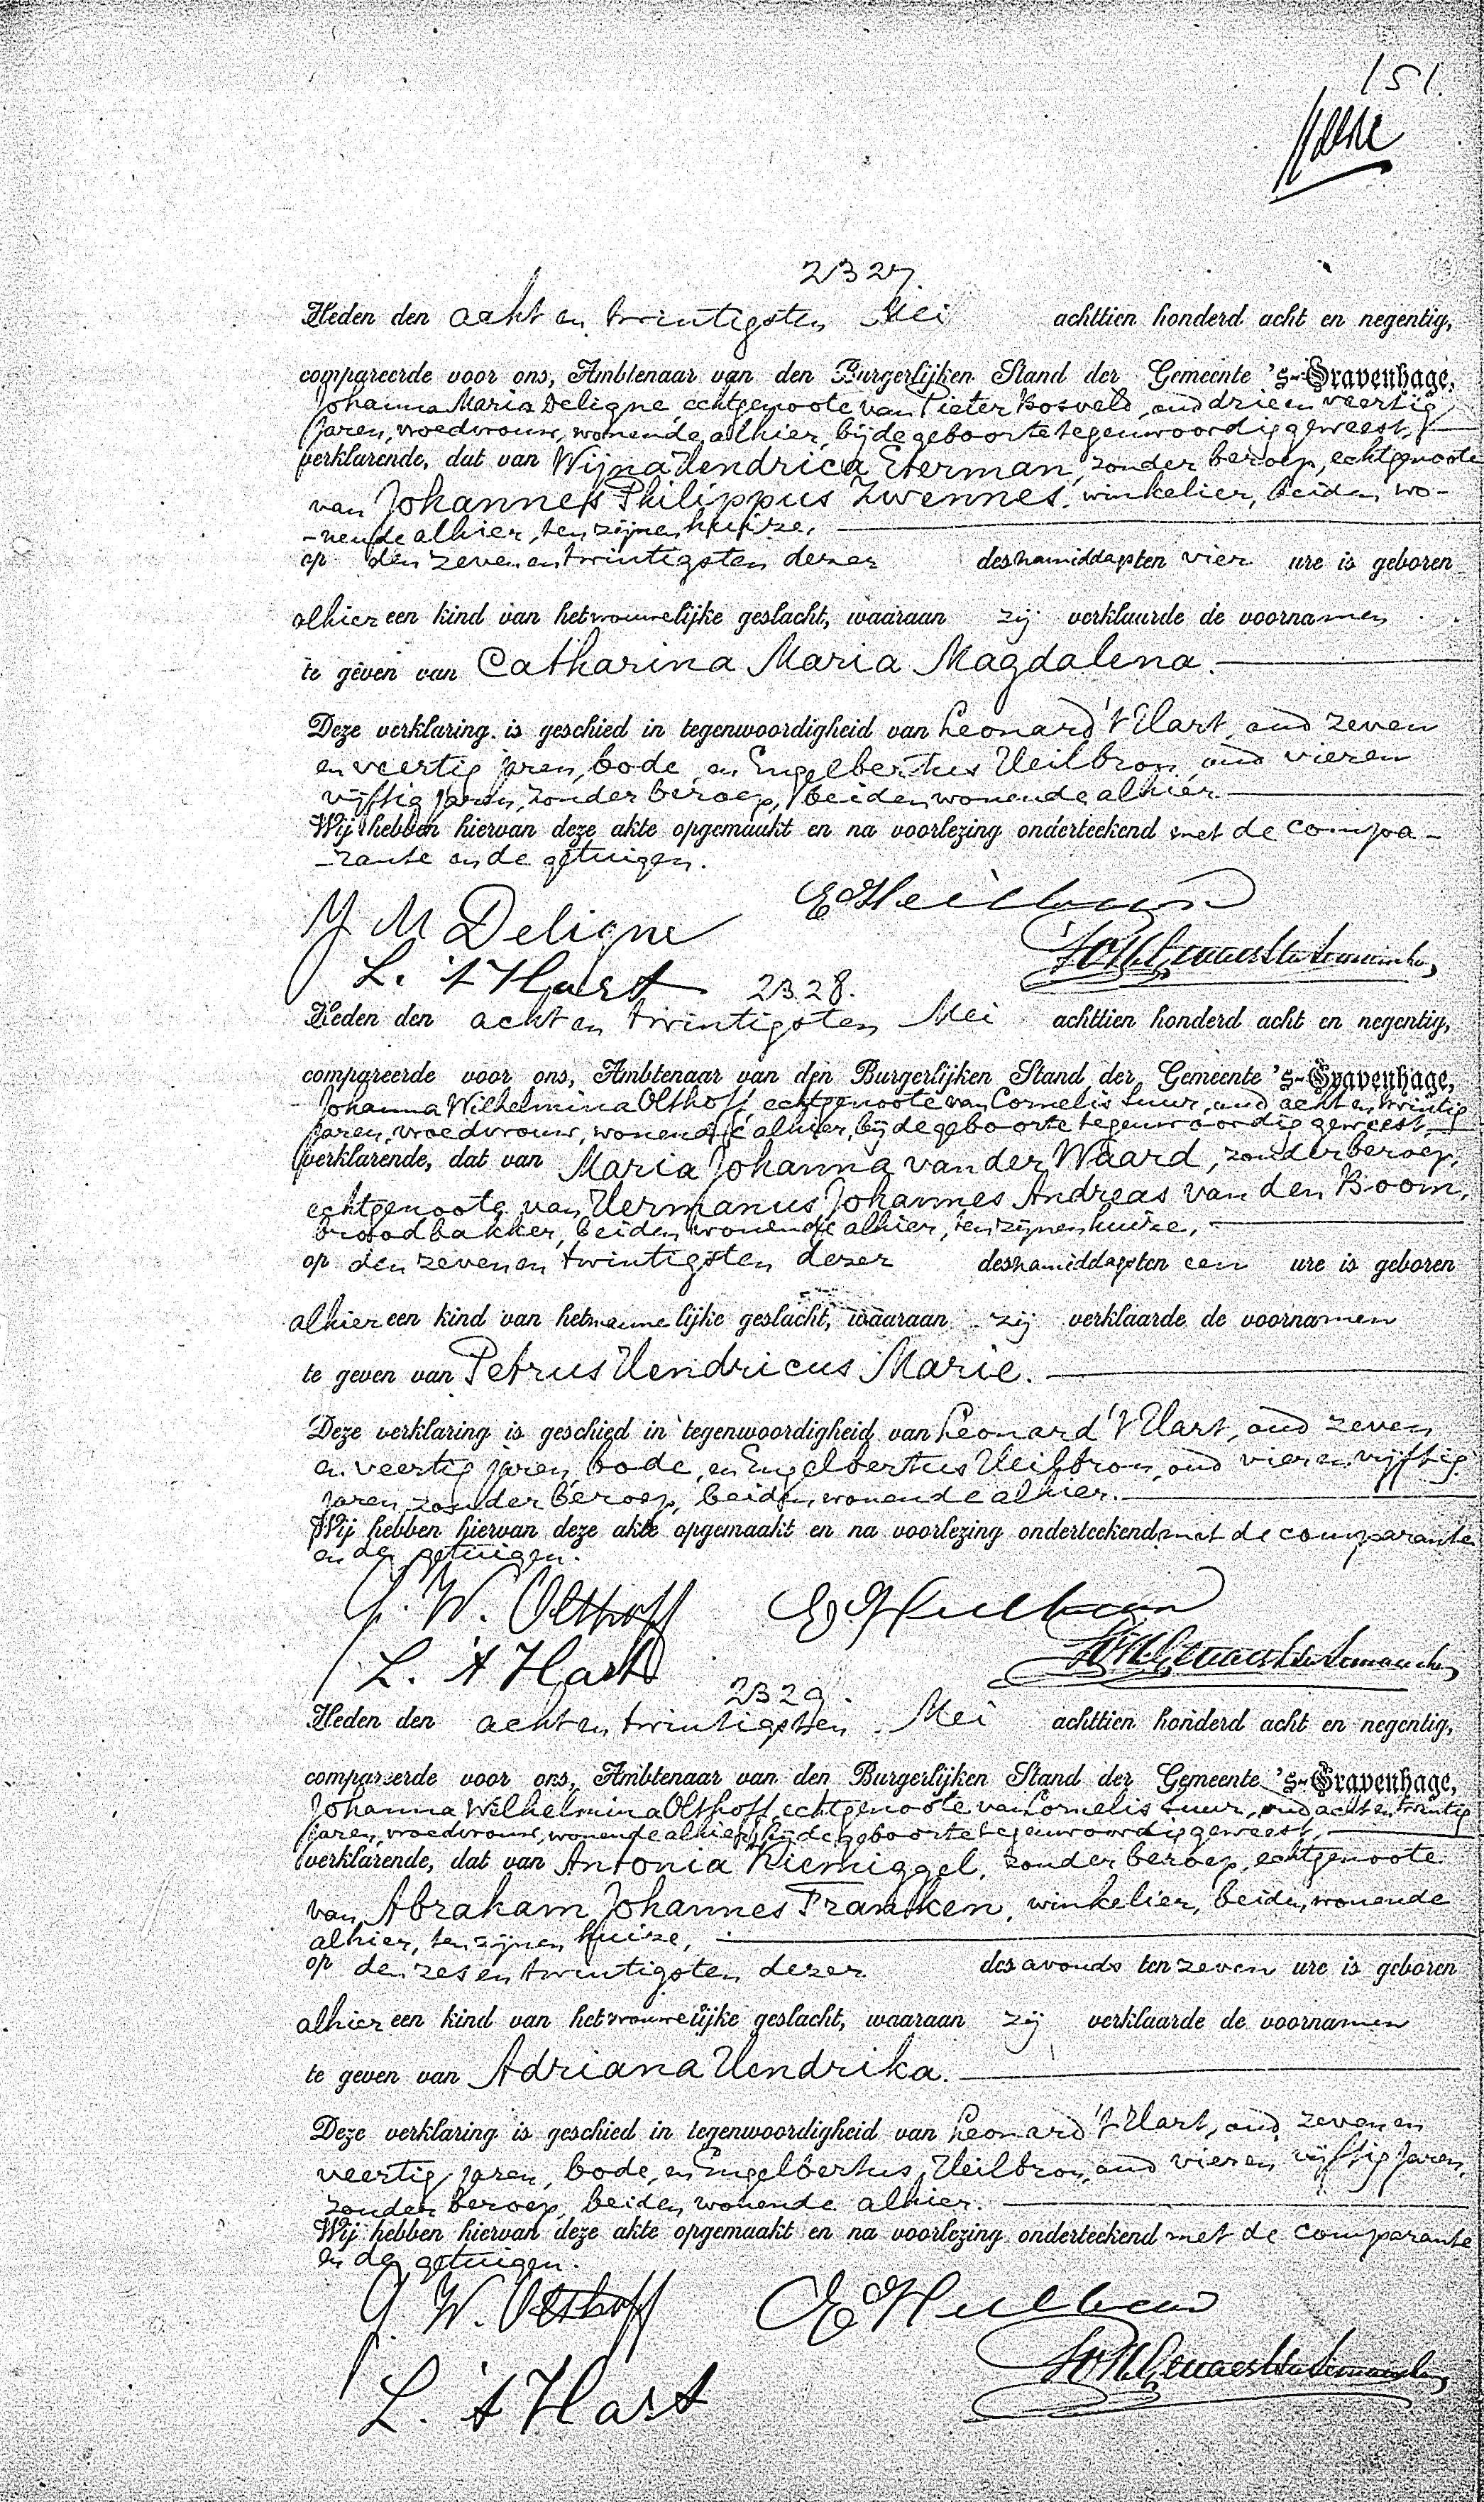 151.
2327.
Heden den acht en twintigsten Mei achttien honderd acht en negentig,
compareerde voor ons, Ambtenaar van den Burgerlijken Stand der Gemeente 's-Gravenhage,
Johanna Maria Deligne, echtgenoote van Pieter Bosveld, oud drie en veertig
jaren, vroedvrouw, wonende alhier, bij de geboorte tegenwoordig geweest,
verklarende, dat van Wijna Hendrica Eterman, zonder beroep, echtgenoote
van Johannes Philippus Zwennes, winkelier, beiden wo-
-nende alhier, ten zijnen huize,
op den zeven en twintigsten dezer des namiddags ten vier ure is geboren
alhier een kind van het vrouwelijke geslacht, waaraan zij verklaarde de voornamen
te geven van Catharina Maria Magdalena.
Deze verklaring is geschied in tegenwoordigheid van Leonard 't Hart, oud zeven
en veertig jaren, bode, en Engelbertus Heilbron, oud vier en
vijftig jaren, zonder beroep, beiden wonende alhier.
Wij hebben hiervan deze akte opgemaakt en na voorlezing onderteekend met de compa-
-rante en de getuigen.
J M Deligne E Heilbron
L. 't Hart
2328.
Heden den acht en twintigsten Mei achttien honderd acht en negentig,
compareerde voor ons, Ambtenaar van den Burgerlijken Stand der Gemeente 's-Gravenhage,
Johanna Wilhelmina Olthoff, echtgenoote van Cornelis Luur, oud acht en twintig
jaren, vroedvrouw, wonende alhier, bij de geboorte tegenwoordig geweest,
verklarende, dat van Maria Johanna van der Waard, zonder beroep,
echtgenoote van Hermanus Johannes Andreas van den Boom,
broodbakker, beiden wonende alhier, ten zijnen huize,
op den zeven en twintigsten dezer des namiddags ten een ure is geboren
alhier een kind van het mannelijke geslacht, waaraan zij verklaarde de voornamen
te geven van Petrus Hendricus Marie.
Deze verklaring is geschied in tegenwoordigheid van Leonard 't Hart, oud zeven
en veertig jaren, bode, en Engelbertus Heilbron, oud vier en vijftig
jaren, zonder beroep, beiden wonende alhier.
Wij hebben hiervan deze akte opgemaakt en na voorlezing onderteekend met de comparante
en de getuigen.
J. W. Olthoff E Heilbron
L. 't Hart
2329.
Heden den acht en twintigsten Mei achttien honderd acht en negentig,
compareerde voor ons, Ambtenaar van den Burgerlijken Stand der Gemeente 's-Gravenhage,
Johanna Wilhelmina Olthoff, echtgenoote van Cornelis Luur, oud acht en twintig
jaren, vroedvrouw, wonende alhier, bij de geboorte tegenwoordig geweest,
verklarende, dat van Antonia Kiemiggel, zonder beroep, echtgenoote
van Abraham Johannes Franken, winkelier, beiden wonende
alhier, ten zijnen huize,
op den zes en twintigsten dezer des avonds ten zeven ure is geboren
alhier een kind van het vrouwelijke geslacht, waaraan zij verklaarde de voornamen
te geven van Adriana Hendrika.
Deze verklaring is geschied in tegenwoordigheid van Leonard 't Hart, oud zeven en
veertig jaren, bode, en Engelbertus Heilbron, oud vier en vijftig jaren,
zonder beroep, beiden wonende alhier.
Wij hebben hiervan deze akte opgemaakt en na voorlezing onderteekend met de comparante
en de getuigen.
J. W. Olthoff E Heilbron
L. 't Hart